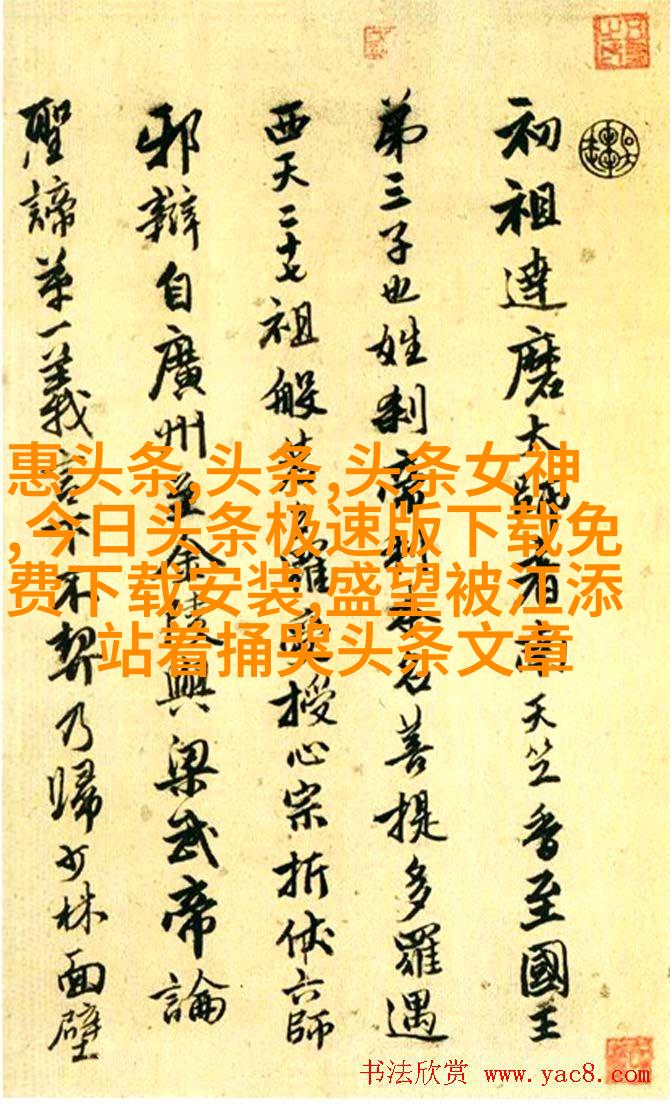 初祖達磨大師者南天竺香至國王
第三子也姓刹帝利本名菩提多羅遇
西天二十七祖般若多羅授心宗折伏六師
邪辯自廣州至金陵與梁武帝論
聖諦第一義言下不契乃歸少林面壁
惠头条,头条,头条女神
,今日头条极速版下载免
费下载安装,盛望被江添
站着捅哭头条文章
书法欣赏 www.yac8.com